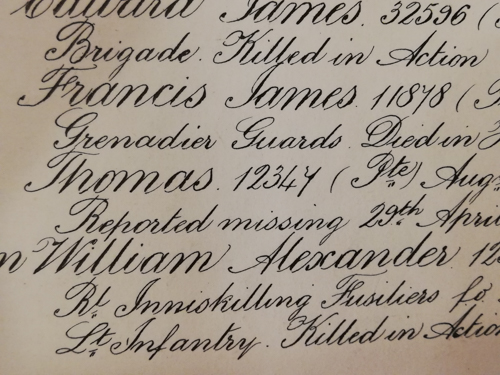 Edward James. 32596 (
Brigade. Killed in Action
Francis James. 11878 (
Grenadier Guards. Died in
Thomas. 12347 (Pte) Aug.
Reported missing 29th April
William Alexander 12
Rl. Inniskilling Fusiliers fo
Lt. Infantry. Killed in Action